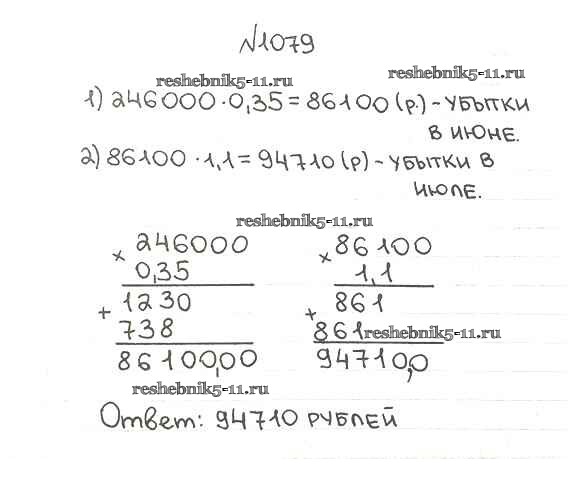 №1079
reshebnik5-11.ru
reshebnik5-11.ru
1) 246000·0,35=86100(р.)-убытки
в июне.
2) 86100·1,1=94710(р)-убытки в
июле.
reshebnik5-11.ru
× 246000
0,35
+ 1230
738
86100,00
× 86100
1,1
+ 861
861
reshebnik5-11.ru
94710,0
reshebnik5-11.ru
Ответ: 94710 рублей